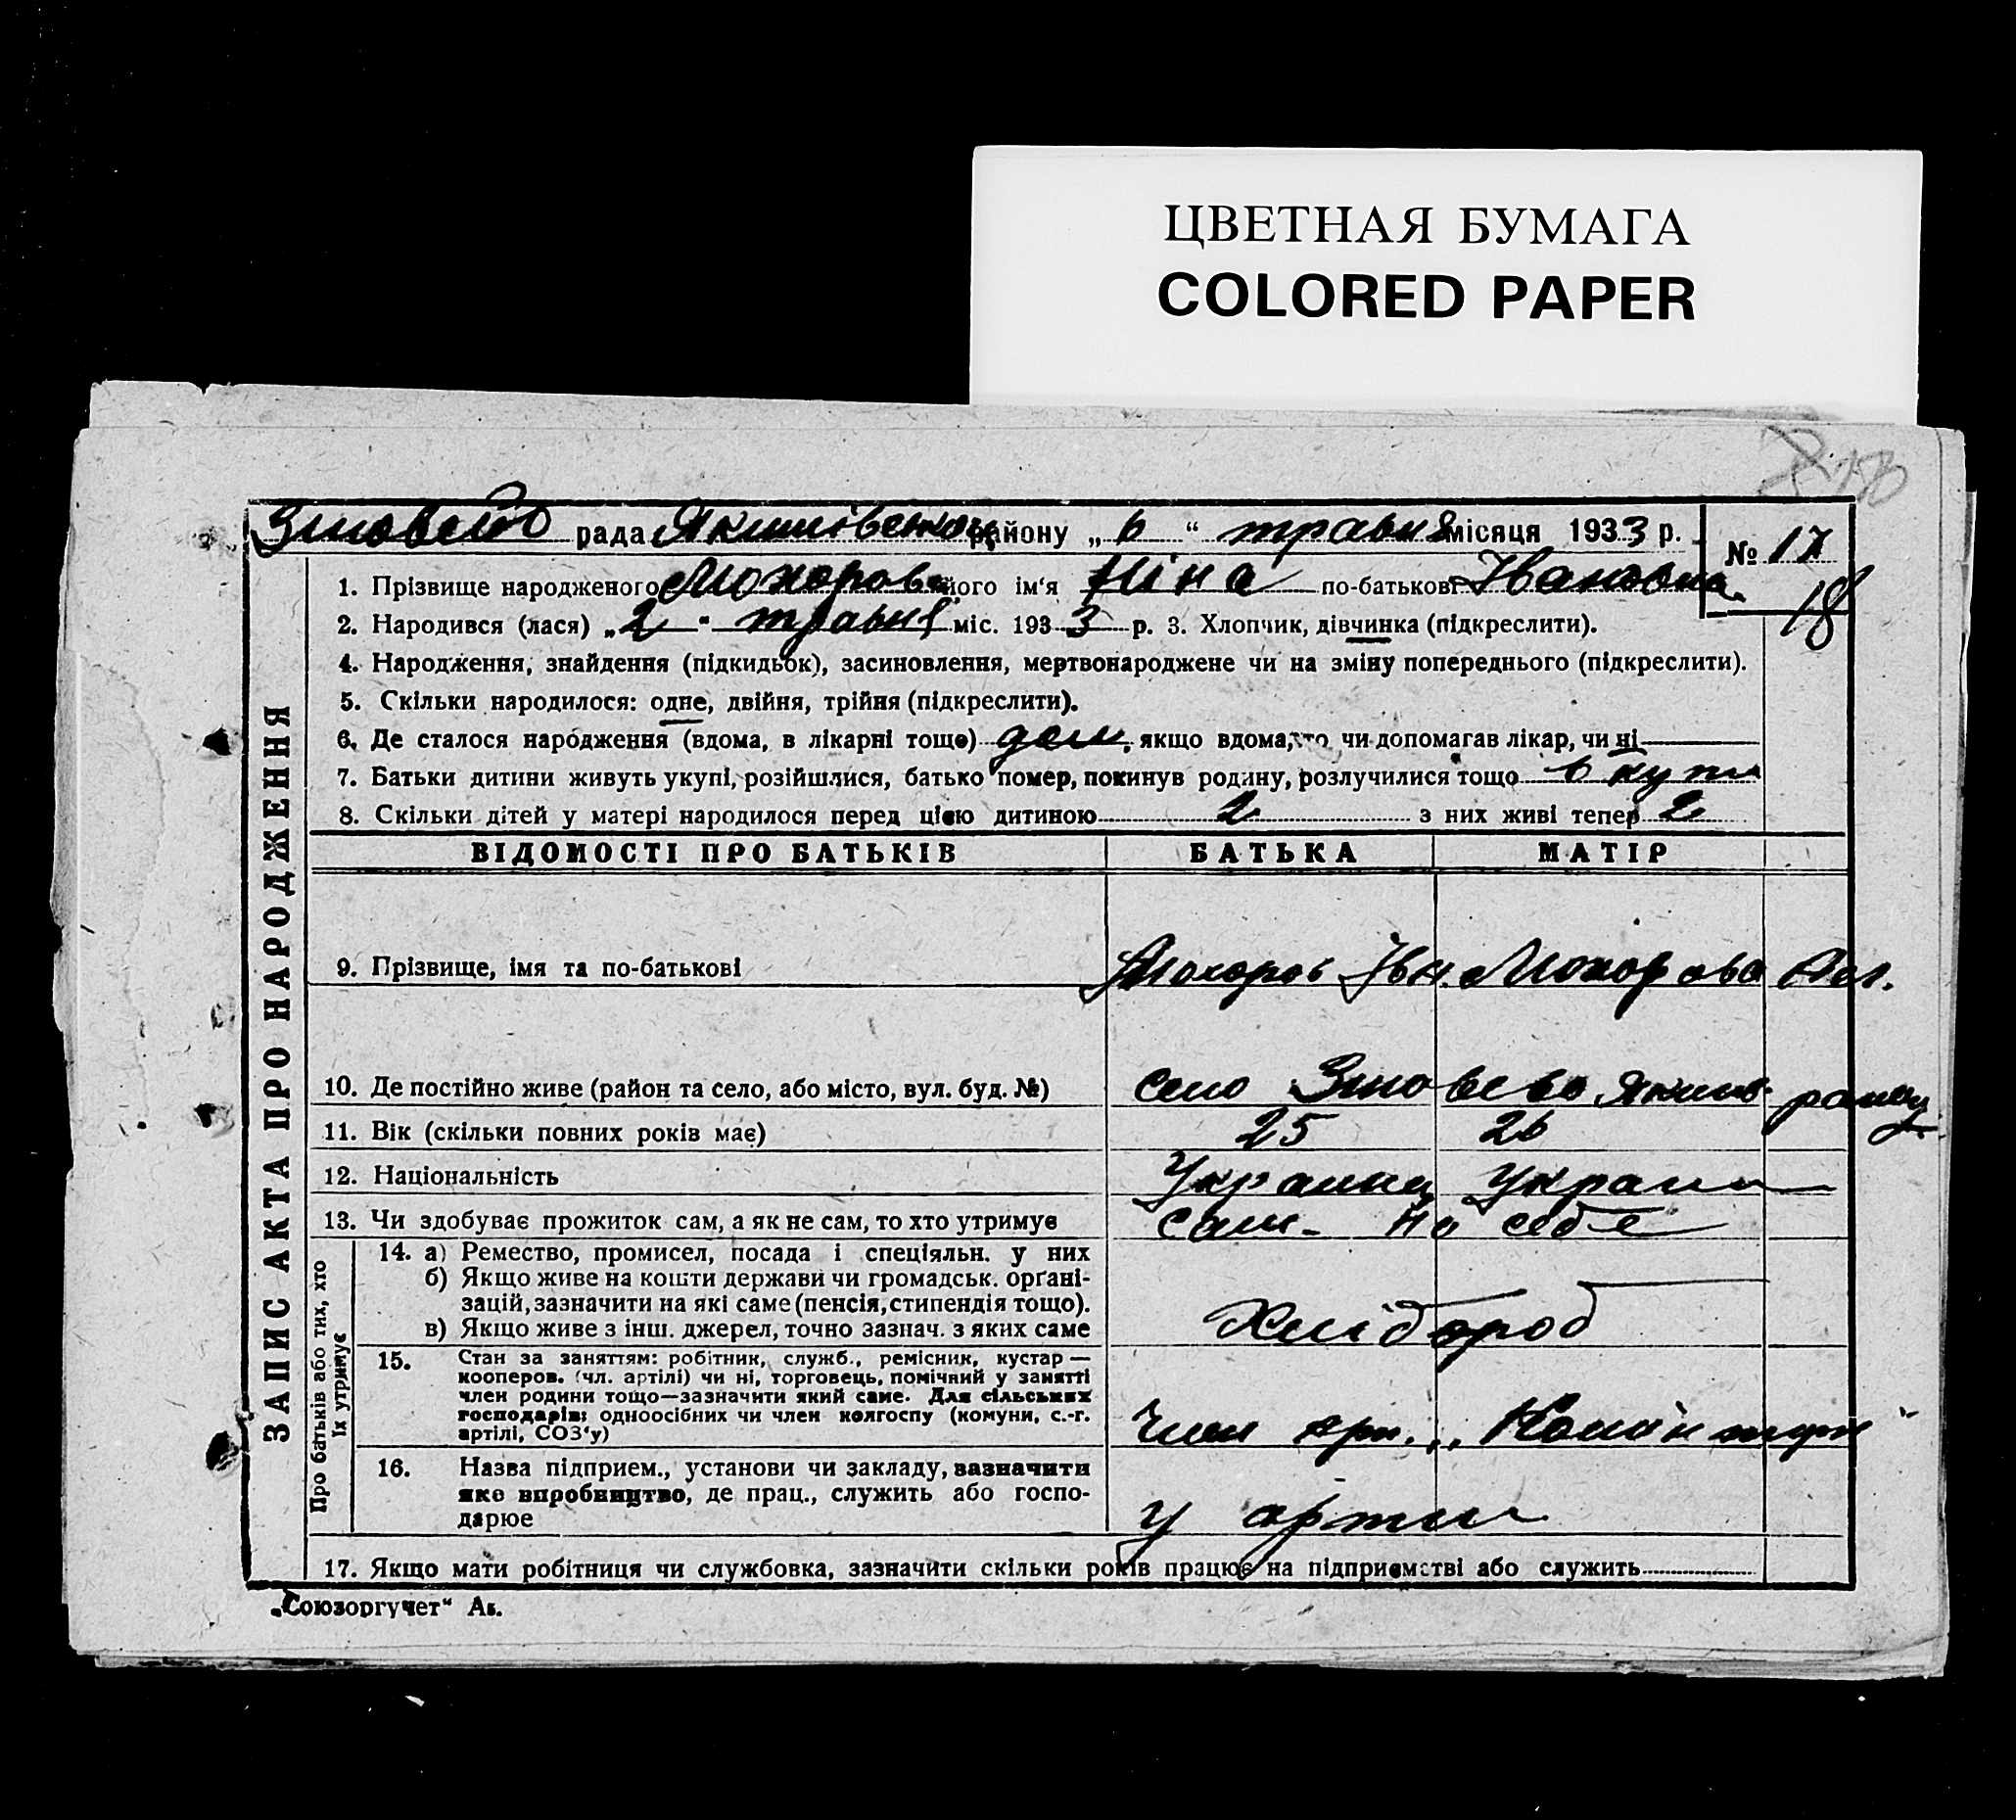 ЦВЕТНАЯ БУМАГА
COLORED PAPER
рада Якимівською району „6“ травня місяця 1933 р. № 17
18
1. Прізвище народженого Мохорова його ім‘я Ніна по-батькові Івановна
2. Народився (лася) „2“ травня міс. 1933 р. 3. Хлопчик, дівчинка (підкреслити).
4. Народження, знайдення (підкидьок), засиновлення, мертвонароджене чи на зміну попереднього (підкреслити).
5. Скільки народилося: одне, двійня, трійня (підкреслити).
6. Де сталося народження (вдома, в лікарні тощо) дом, якщо вдома, то чи допомагав лікар, чи ні
7. Батьки дитини живуть укупі, розійшлися, батько помер, покинув родину, розлучилися тощо вкупі
8. Скільки дітей у матері народилося перед цією дитиною 2 з них живі тепер 2
ЗАПИС АКТА ПРО НАРОДЖЕННЯ
ВІДОМОСТІ ПРО БАТЬКІВ БАТЬКА МАТІР
9. Прізвище, імя та по-батькові Мохоров Ів. Мохорова
10. Де постійно живе (район та село, або місто, вул. буд. №) село Яким. району
11. Вік (скільки повних років має) 25 26
12. Національність Украинец Украин
13. Чи здобуває прожиток сам, а як не сам, то хто утримує сам на себе
Про батьків або тих, хто їх утримує
14. а) Ремество, промисел, посада і спеціяльн. у них
б) Якщо живе на кошти держави чи громадськ. орґані-
зацій, зазначити на які саме (пенсія, стипендія тощо).
в) Якщо живе з інш. джерел, точно зазнач. з яких саме Хлібороб
15. Стан за заняттям: робітник, служб., ремісник, кустар—
кооперов. (чл. артілі) чи ні, торговець, помічний у занятті
член родини тощо—зазначити який саме. Для сільських
господарів: одноосібних чи член колгоспу (комуни, с.-г.
артілі, СОЗ‘у) Член арт. „Комінтерн“
16. Назва підприєм., установи чи закладу, зазначити
яке виробництво, де прац., служить або госпо-
дарює у артили
17. Якщо мати робітниця чи службовка, зазначити скільки років працює на підприємстві або служить
„Союзоргучет“ Ак.